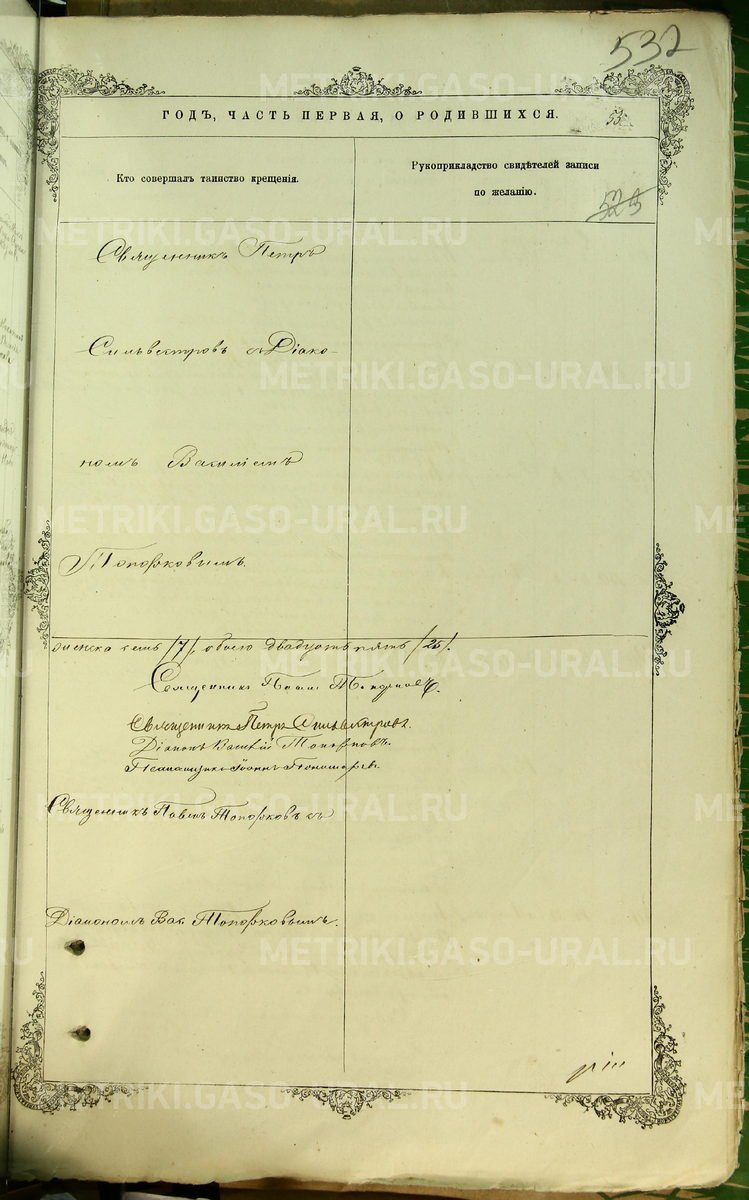 532
ГОДЪ, ЧАСТЬ ПЕРВАЯ, О РОДИВШИХСЯ.
Кто совершалъ таинство крещенія.
Рукоприкладство свидѣтелей записи
по желанію.
525
Священникъ Петръ
Сильвестровъ съ Діако-
номъ Василіемъ
Топорковымъ.
женска семь /7/, обоего двадцать пять /25/.
Священникъ Павелъ Топорковъ.
Священникъ Петръ Сильвестровъ.
Діаконъ Василій Топорковъ.
Псаломщикъ Іоаннъ Пономаревъ.
Священникъ Павелъ Топорковъ съ
Діакономъ Вас. Топорковымъ.
METRIKI.GASO-URAL.RU